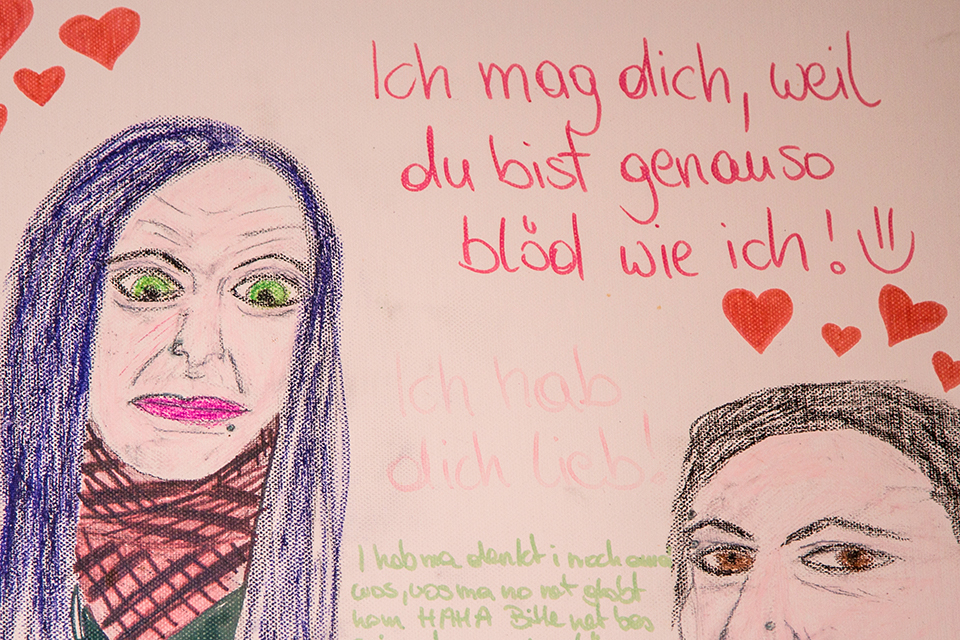 Ich mag dich, weil
du bist genauso
blöd wie ich!
Ich hab
dich lieb!
I hab ma denkt i moch
wos, wos ma no net ghobt
hom HAHA Bitte net bes